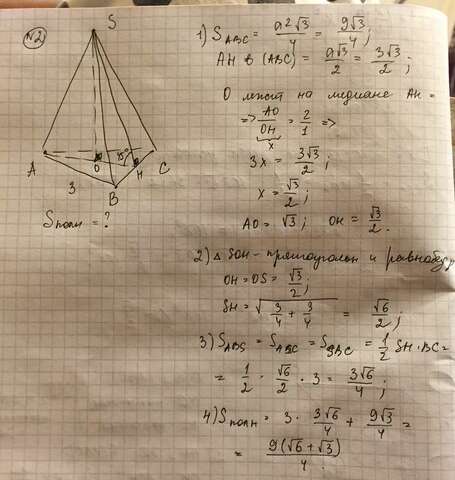 №2
S
A
O
45°
H
C
3
B
Sполн = ?
1) S ABC = a²√3/4 = 9√3/4;
AH в (ABC) = a√3/2 = 3√3/2;
O лежит на медиане AH =
=> AO/OH = 2/1 =>
x
3x = 3√3/2;
x = √3/2;
AO = √3; OH = √3/2.
2) △ SOH - прямоугольн и равнобедр
OH = OS = √3/2;
SH = √(3/4 + 3/4) = √6/2;
3) S ABS = S ASC = S SBC = 1/2 SH · BC =
= 1/2 · √6/2 · 3 = 3√6/4;
4) Sполн = 3 · 3√6/4 + 9√3/4 =
= 9(√6 + √3)/4.